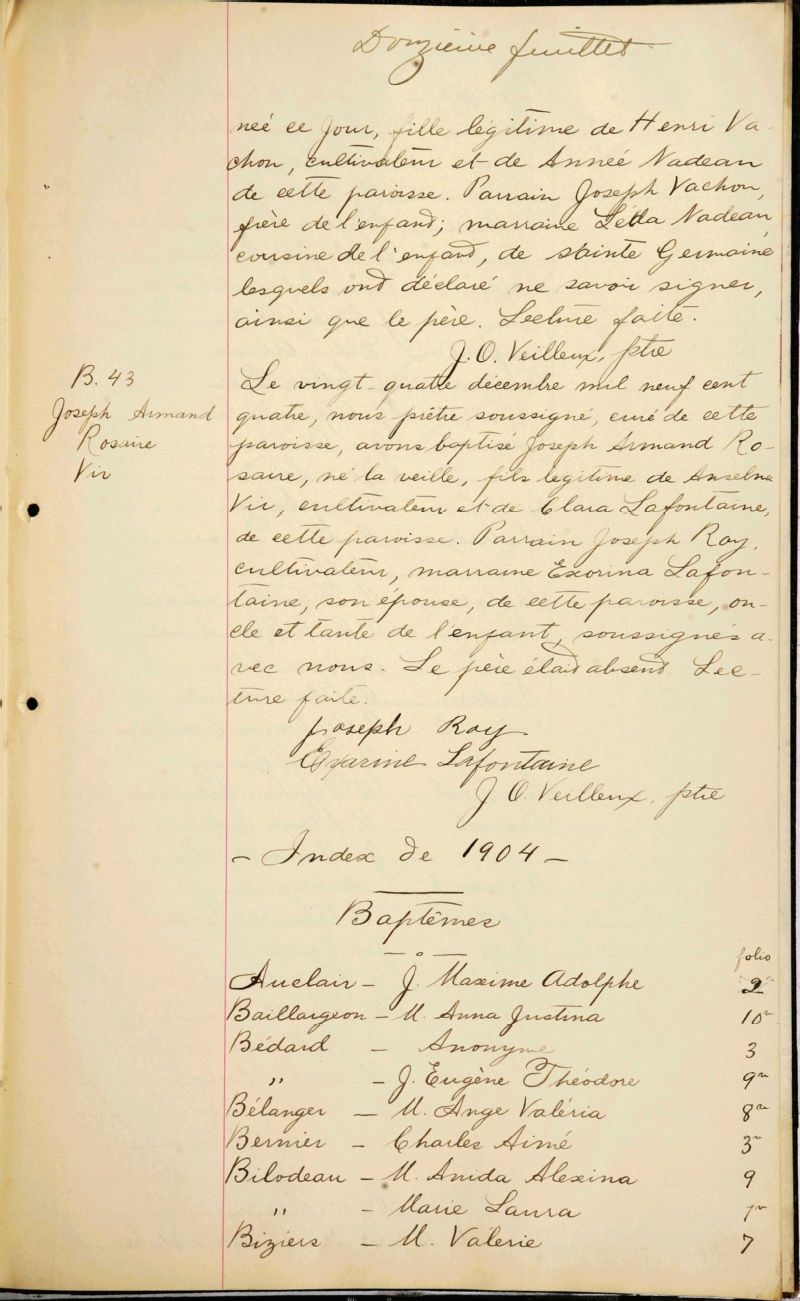 Douzième feuillet
neé ce jour, fille légitime de Henri Va-
chon, cultivateur et de Anneé Nadeau
de cette paroisse. Parrain Joseph Vachon,
frère de l'enfand; marraine Nadeau
cousine de l'enfand, de Sainte Germaine
lesquels ond déclaré ne savoir signer,
ainsi que le père. Lecture faite.
J. O. Veilleux, ptre
B. 43
Joseph Armand
Rosaire
Vir
Le vingt-quatre décembre mil neuf cent
quatre, nous prêtre soussigné, curé de cette
paroisse, avons baptisé Joseph Armand Ro-
saire, né la veille, fils legitime de Anselme
Vir, cultivateur et de Clara Lafontaine,
de cette paroisse. Parrain Joseph Roy,
cultivateur, marraine Exorina Lafon-
taine, son épouse, de cette paroisse, on-
cle et tante de l'enfant, soussignés a-
vec nous. Le père étaid absend. Lec-
ture faite.
Joseph Roy
Exarine Lafontaine
J. O. Veilleux, ptre
- Index de 1904 -
Baptêmes
folio
Auclair - J. Maxime Adolphe 2
Baillargeon - M. Anna Justina 10
Bédard - Anonyme 3
" - J. Eugène Théodore 9
Bélanger - M. Ange Valéria 8
Bernier - Charles Aimé 3
Bilodeau - M. Anida Alexina 9
" - Marie Laura
Biziers - M. Valerie 7